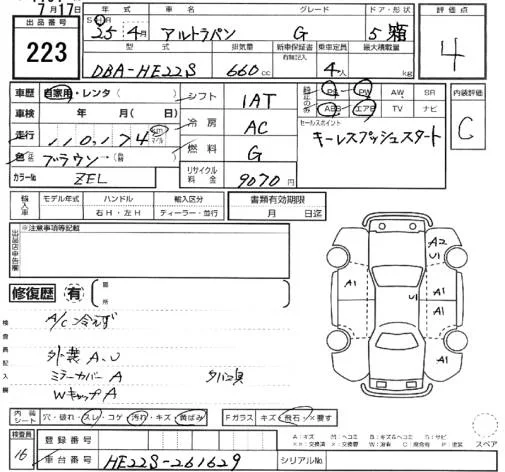 7月17日
出品番号
223
年式 車名 グレード ドア・形状 評価点
25年4月 アルトラパン G 5 箱 4
型式 排気量 新車保証書 乗車定員 最大積載量
有無記入
DBA-HE22S 660cc 4人 kg
車歴 自家用・レンタ( ) シフト IAT PS PW AW SR 内装評価
車検 年 月( 日) 冷房 AC AB エアB TV ナビ C
走行 110,174 km マイル セールスポイント
キーレスプッシュスタート
色 ブラウン 燃料 G
カラーNo. ZEL リサイクル料金 9070円
輸入車 モデル年式 ハンドル 輸入区分 書類有効期限
右H・左H ディーラー・並行 月 日迄
※注意事項等記載
修復歴 有 箇所
A2
U1
A1 U1 A1
A1
検査員記入欄
A/C 冷えず
外装 A、U
ミラーカバー A タバコ臭
WキャップA
内装シート 穴・破れ・スレ・コゲ 汚れ・キズ・黄ばみ Fガラス キズ・飛石・×要す
検査員 登録番号
A:キズ M:ヘコミ B:キズ&ヘコミ S:サビ
スペア
16 車台番号 HE22S-261629 シリアルNo.